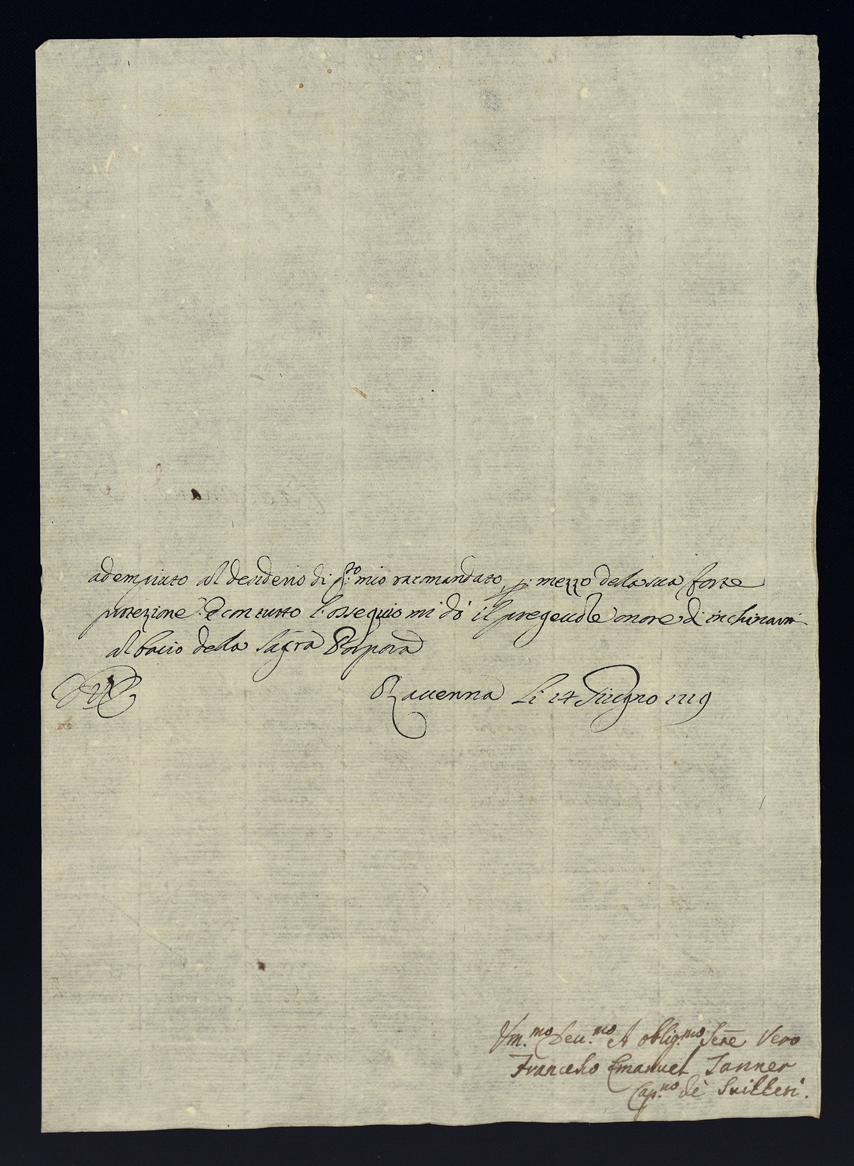 adempiuto al desiderio di sto: mio racmandato, p: mezzo della sua forte
protezione: E con tutto l'ossequio mi dò il pregeuole onore di inchinarmi
al bacio della Sagra Porpora
Rauenna Li 14 Giugno 1719
Vm.mo Deu.mo et oblig.mo Serẽ Vero
Francesco Emanuel Tanner
Cap.no dè Suitteri.